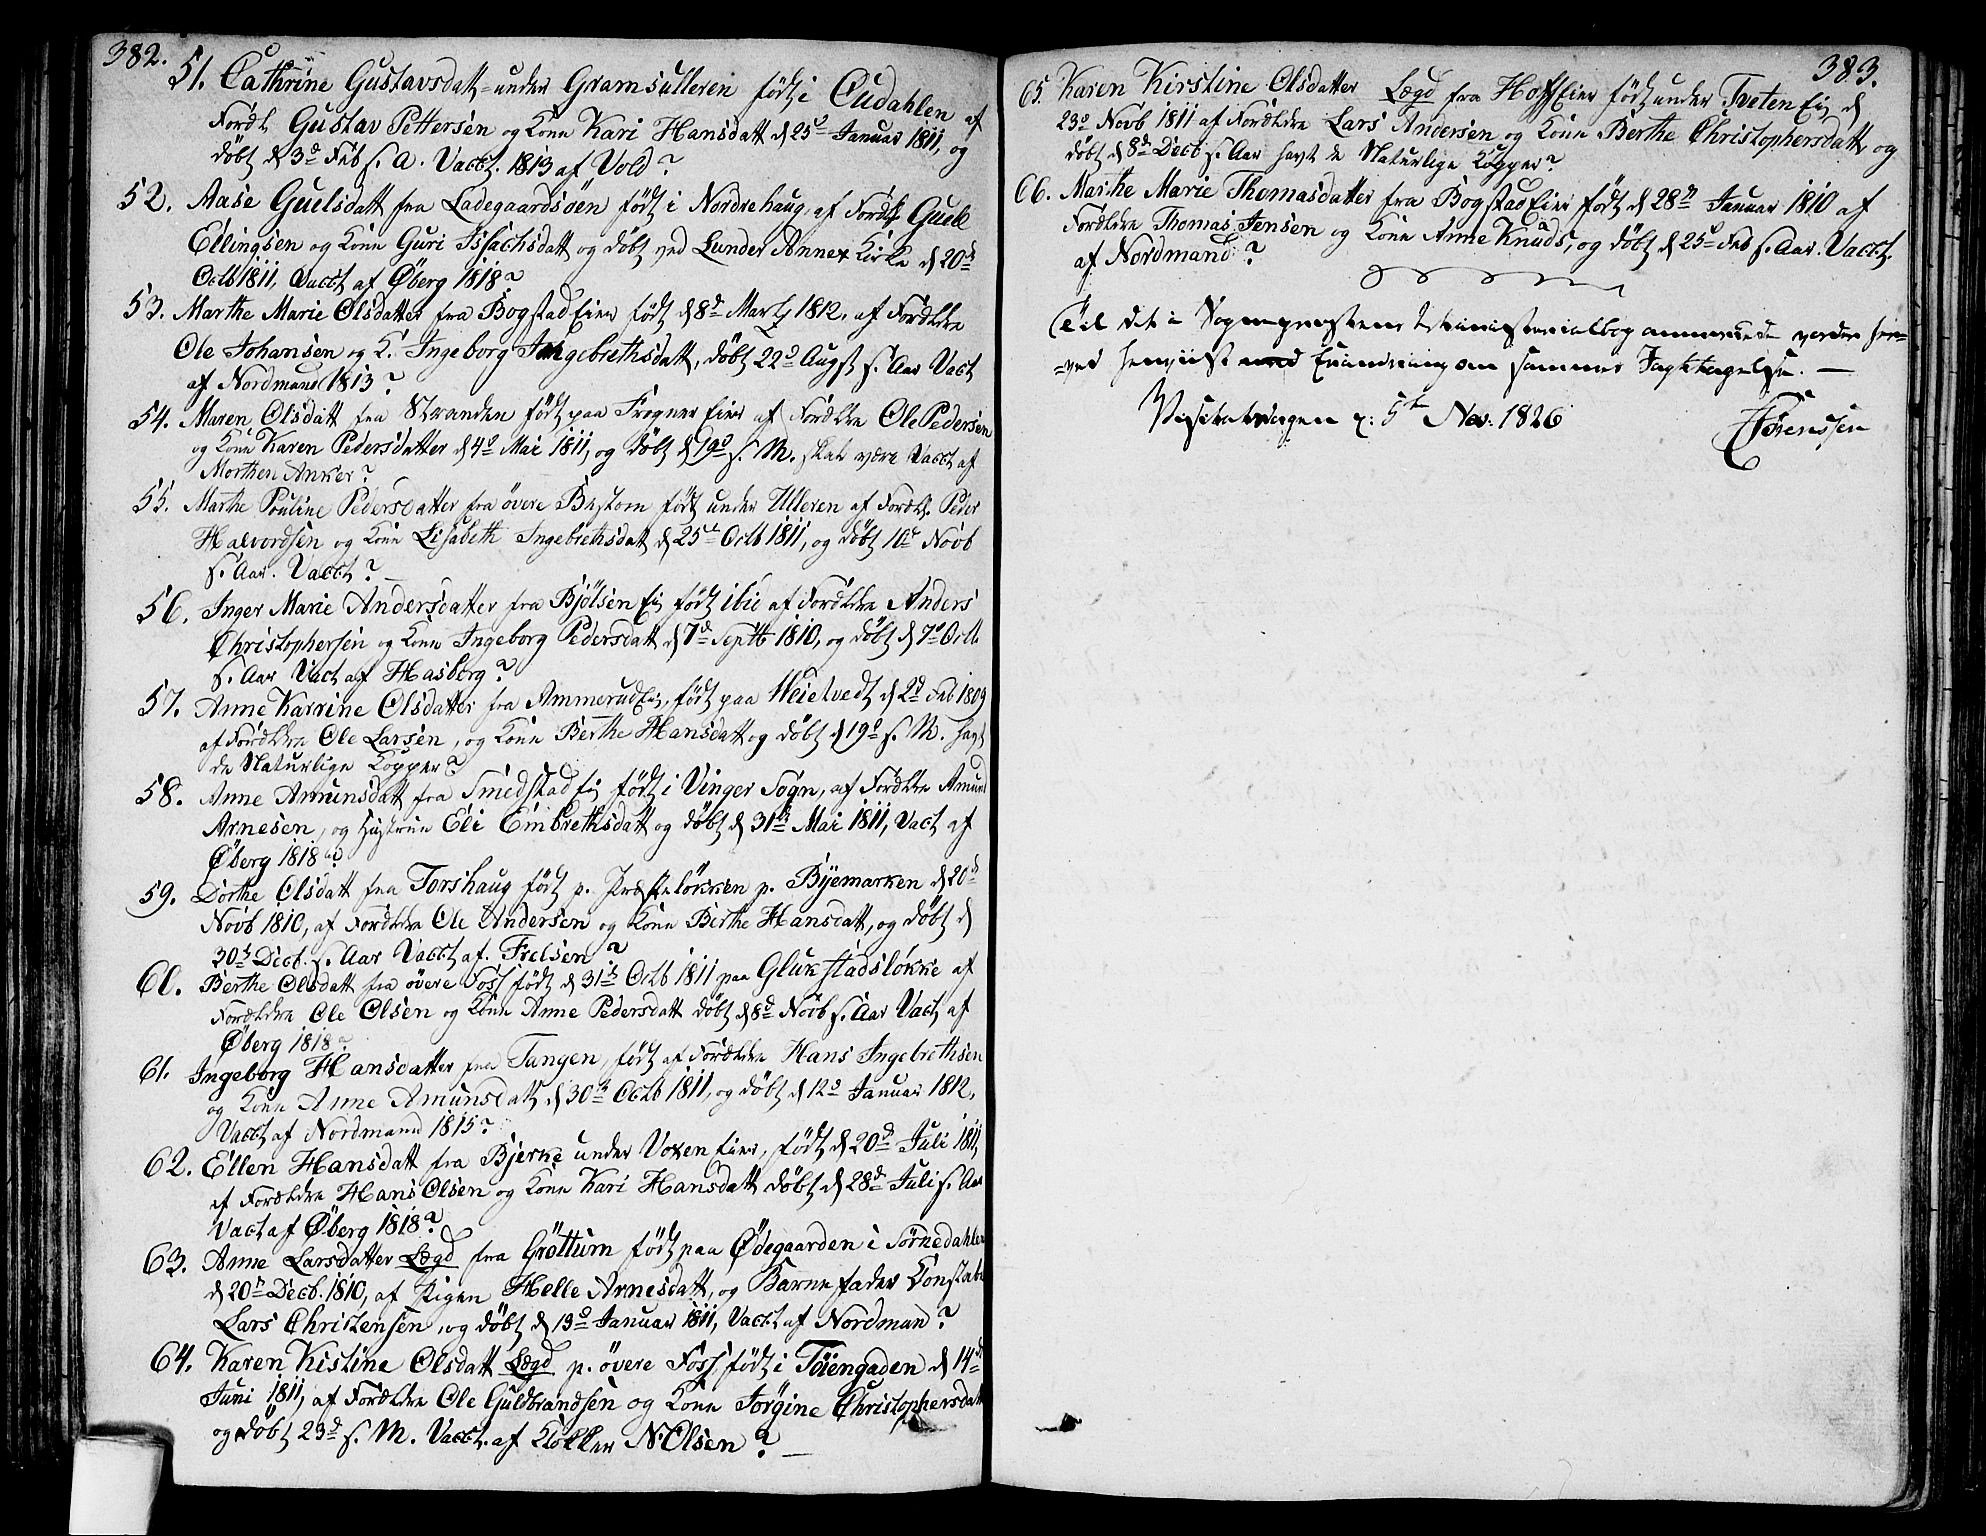 382.
51. Cathrine Gustavsdatt under Gramsulleren født i Oudahlen af
Fordl Gustav Pettersen og Kone Kari Hansdatt d 25d Januar 1811, og
døbt d 3d Feb s. A. Vacct. 1813 af Vold?
52. Aase Guelsdatt fra Ladegaardsøen født i Nordrehaug, af Fordl Guel
Ellingsen og Kone Guri Issachsdatt og døbt ved Lunder Annex Kirke d 20d
Octb 1811, Vacct af Øberg 1818?
53. Marthe Marie Olsdatter fra Bogstad Eier født d 8d Marts 1812, af Forældre
Ole Johansen og K. Ingeborg Ingebrethsdatt, døbt 22d Augst s. Aar Vacct
af Nordmand 1813?
54. Maren Olsdatt fra Stranden født paa Frogner Eier af Forældre Ole Pedersen
og Kone Karen Pedersdatter d 4d Mai 1811, og døbt d 19d s. M. skal være Vacct af
Morthen Anker?
55. Marthe Pouline Pedersdatter fra øvere Bestom født under Ulleren af Fordl. Peder
Halvordsen og Kone Lisabeth Ingebrethsdatt d 25d Octb 1811, og døbt 10d Novb
s. Aar. Vacct?
56. Inger Marie Andersdatter fra Bjølsen Ei født ibid af Forældre Anders
Christophersen og Kone Ingeborg Pedersdatt d 7d Septb 1810, og døbt d 7d Octb
s. Aar Vact af Hasberg?
57. Anne Karrine Olsdatter fra Ammerud Ei, født paa Weietvedt d 2d Feb 1809
af Forældre Ole Larsen, og Kone Berthe Hansdatt og døbt d 19d s. M. havt
de Naturlige Kopper?
58. Anne Amunsdatt fra Smedstad Ei født i Vinger Sogn, af Forældre Amund
Arnesen, og Hustrue Eli Embrethsdatt og døbt d 31te Mai 1811, Vact af
Øberg 1818?
59. Dorthe Olsdatt fra Torshaug født p. Præsteløkken p. Byemarken d 20d
Novb 1810, af Forældre Ole Andersen og Kone Berthe Hansdatt, og døbt d
30d Decb. s. Aar Vacct af. Frelsen?
60. Berthe Olsdatt fra øvere Foss født d 31te Octb 1811 paa Glukstadsløkke af
Forældre Ole Olsen og Kone Anne Pedersdatt døbt d 8d Novb s. Aar Vact af
Øberg 1818?
61. Ingeborg Hansdatter fra Tangen, født af Forældre Hans Ingebrethsen
og Kone Anne Amunsdatt d 30te Octb 1811, og døbt d 12d Januar 1812,
Vacct af Nordmand 1815?
62. Ellen Hansdatt fra Bjerke under Voxen Eier, født d 20d Juli 1811,
af Forældre Hans Olsen og Kone Kari Hansdatt døbt d 28d Juli s. Aar
Vact af Øberg 1818?
63. Anne Larsdatter Lægd fra Grøttum født paa Ødegaarden i Sørkedahlen
d 20d Decb. 1810, af Pigen Helle Arnesdatt, og Barnefader Constabe
Lars Christensen, og døbt d 13d Januar 1811, Vacct af Nordman?
64. Karen Kistine Olsdatt Lægd p. øvere Foss, født i Tøiengaden d 14d
Juni 1811, af Forældre Ole Guldbrandsen og Kone Jørgine Christophersdatt
og døbt 23d s. M. Vacct. af Klokker N. Olsen?
383.
65. Karen Kirstine Olsdatter Lægd fra Hoff Eier født under Tveten Ei d
23d Novb 1811 af Forældre Lars Andersen og Kone Berthe Christophersdatt og
døbt d 8d Decb s. Aar havt de Naturlige Kopper?
66. Marthe Marie Thomasdatter fra Bogstad Eier født d 28de Januar 1810 af
Forældre Thomas Jensen og Kone Anne Knuds, og døbt d 25d Feb s. Aar. Vacct.
af Nordmand?
Til det i Sognepræstens Ministerialbog anmærkede vorder her-
-ved henviist med Erindring om sammes Iagttagelse. —
Visitatsdagen d: 5te Nov: 1826
Sørenssen